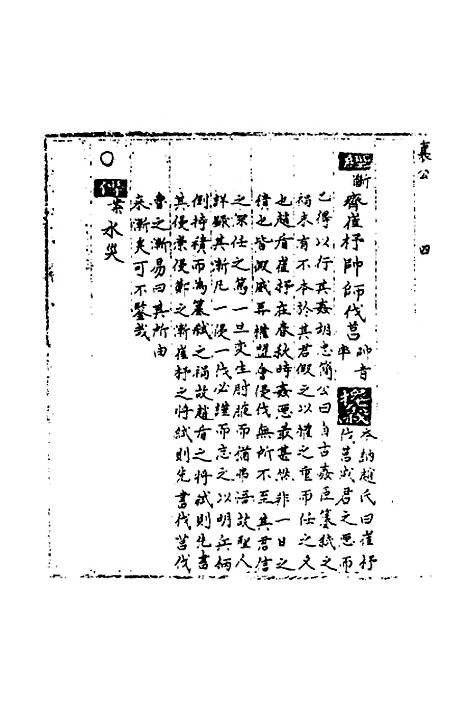 襄公 四
經 斷 齊崔杼帥師伐莒 帥音率
木納趙氏曰崔杼
伐莒成君之惡而
己得以行其姦胡忠簡公曰自古姦臣篡弑之
禍未有不本於其君假之以權之重而任之久
也趙盾崔杼在春秋時姦惡最甚然非一日之
積也皆取威再繼盟會侵伐無所不至其君信
之深任之篤一旦變生肘腋而猶弗悟故聖人
詳録其漸凡一侵一伐必謹而志之以明兵柄
倒持積而為篡弑之禍故趙盾之將弑則先書
其侵崇侵鄭之漸崔杼之將弑則先書伐莒伐
魯之漸易曰其所由
來漸矣可不鑒哉
○ 案水災